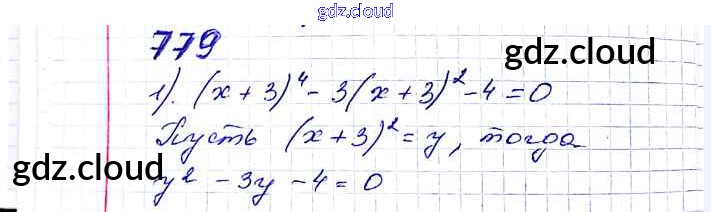 gdz.cloud
779
gdz.cloud
1). (x+3)⁴ - 3(x+3)² - 4 = 0
Пусть (x+3)² = y, тогда
gdz.cloud
y² - 3y - 4 = 0